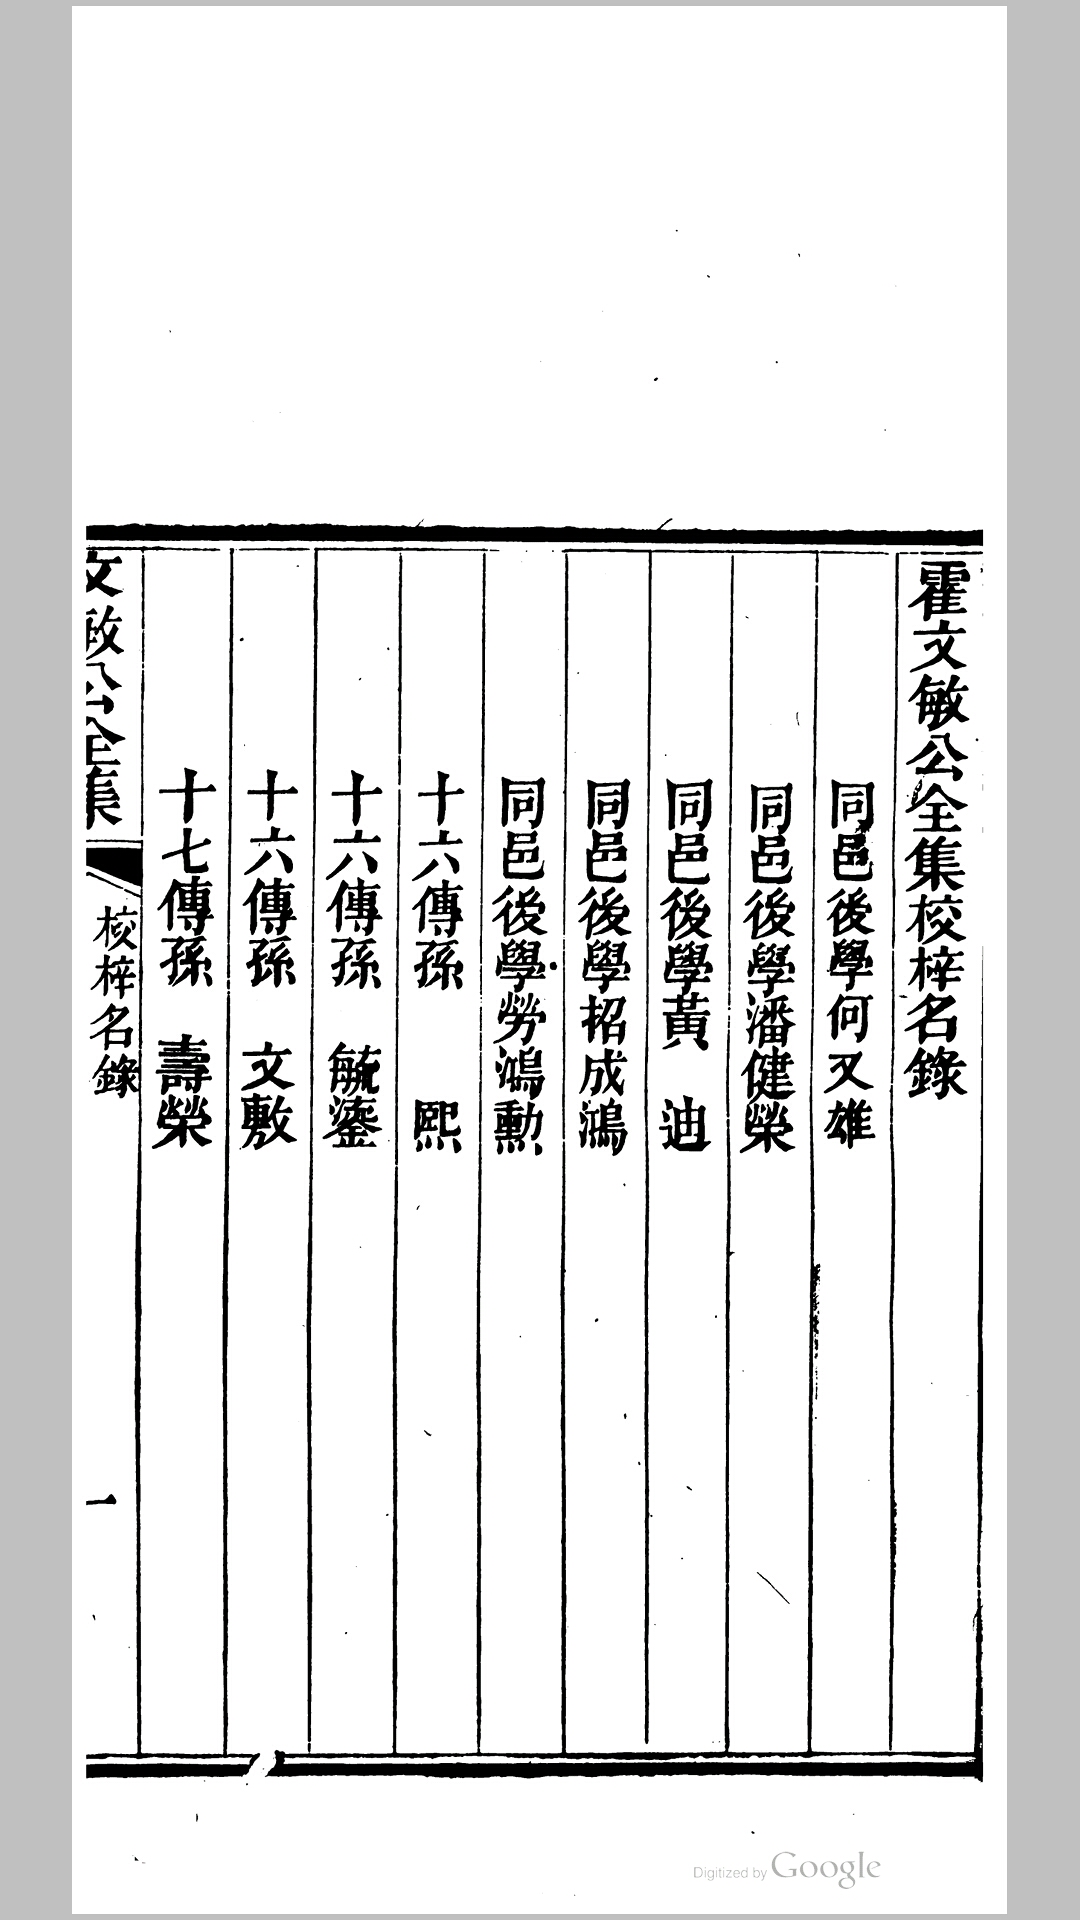 霍文敏公全集校梓名錄
同邑後學何又雄
同邑後學潘健榮
同邑後學黃　迪
同邑後學招成鴻
同邑後學勞鴻勲
十六傳孫　　熙
十六傳孫　毓鎏
十六傳孫　文敷
十七傳孫　壽榮
文敏公全集
校梓名錄
一
Digitized by Google